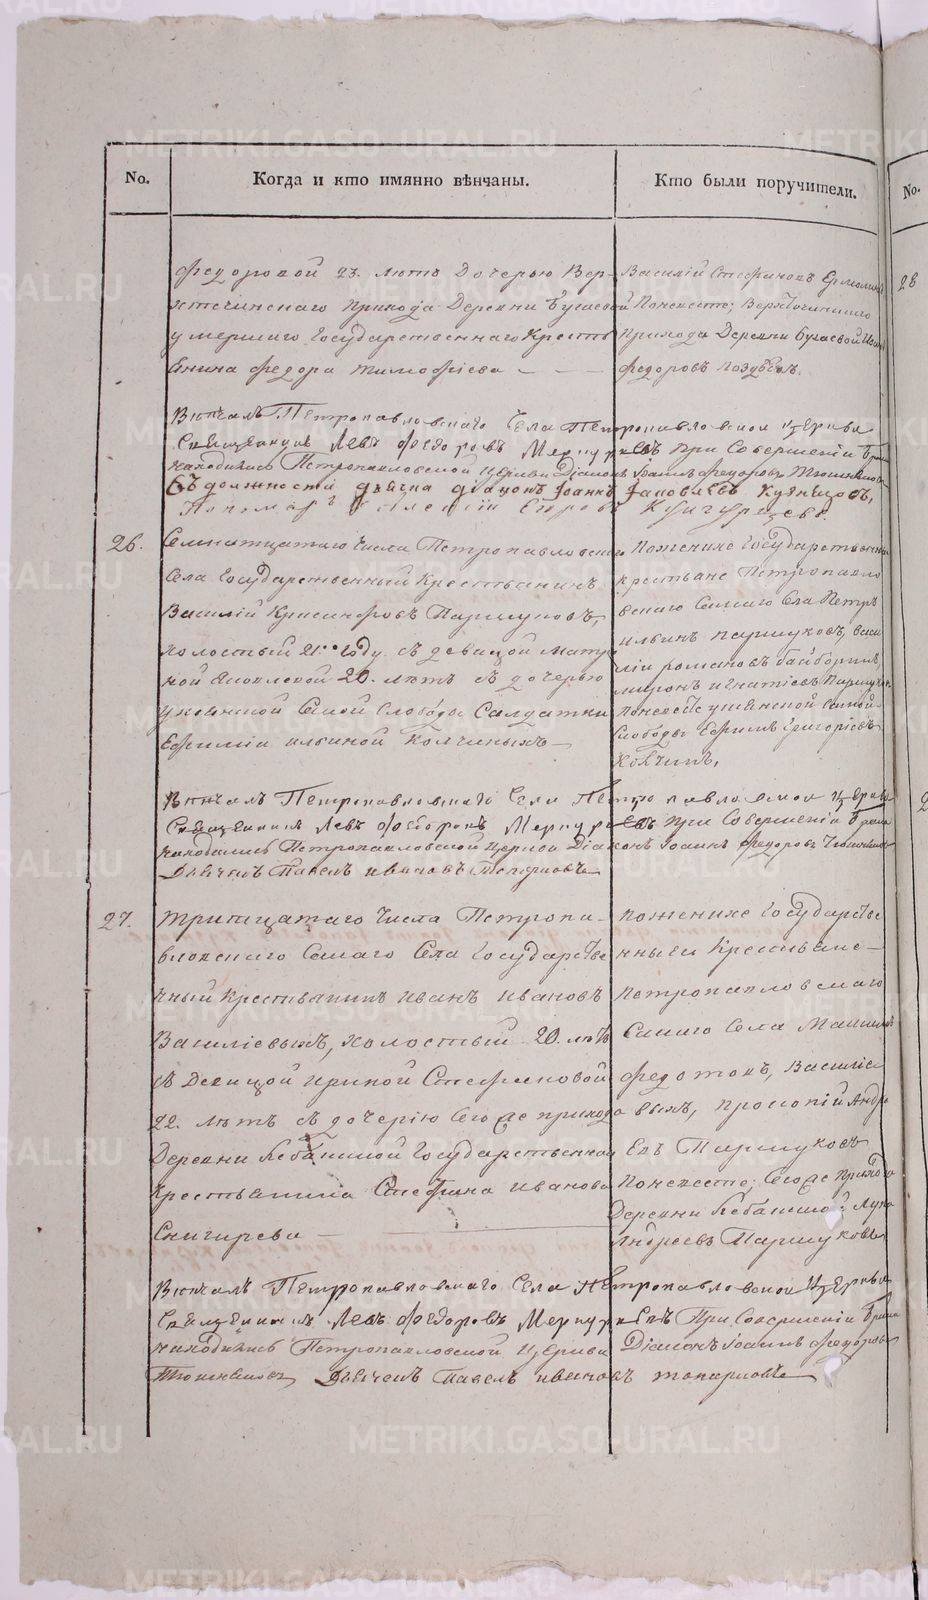 No.
Когда и кто имянно вѣнчаны.
Кто были поручители.
No.
Федоровой 23. лѣтъ Дочерью Вер-
хтечинскаго прихода Деревни Бугаевой
умершаго Государственнаго Кресть
янина Федора Тимофѣева
Василій Стефановъ
По невесте; Верхтечинскаго
прихода Деревни Бугаевой
Федоровъ
28
Вѣнчалъ Петропавловскаго Села Петропавловской церкви
Священникъ Левъ Федоровъ Меркурьевъ при Совершеніи брака
находились Петропавловской церкви Діаконъ Іоаннъ Федоровъ
Въ должности дьячка діаконъ Іоаннъ Іаковлевъ
Пономарь Алексій Егоровъ
26.
Семнатцатаго Числа Петропавловскаго
Села Государственный Крестьянинъ
Василій Никифоровъ Паршуковъ,
холостый 21. году съ девицой Матре
ной Яковлевой 20. лѣтъ съ дочерью
Самой Слободы Салдатки
Ефиміи Ильиной Колчиныхъ
По женихе Государственны
крестьяне Петропавло
вскаго Самаго Села Петръ
Ильинъ Паршуковъ, Васи
лій Романовъ Байборинъ,
Миронъ Игнатіевъ Паршуков
По невесте Самой
Слободы Ефимъ Григоріевъ
Колчинъ.
Вѣнчалъ Петропавловскаго Села Петропавловской церкви
Священникъ Левъ Федоровъ Меркурьевъ при Совершеніи брака
находились Петропавловской церкви Діаконъ Іоаннъ Федоровъ
Дьячекъ Павелъ Ивановъ Топорковъ
27.
Тритцатаго Числа Петропа-
вловскаго Самаго Села Государстве
нный Крестьянинъ Иванъ Ивановъ
Василіевыхъ, холостый 20. лѣтъ
съ Девицой Ириной Стефановой
22. лѣтъ съ дочерію Сегоже прихода
Деревни Кебаниной Государственнаго
Крестьянина Стефана Иванова
Снигирева
По женихе Государстве
нныи Крестьяне
Петропавловскаго
Самаго Села
Федотовъ, Василіе
выхъ, Прокопій Андре
евъ Паршуковъ
По невесте; Сегоже прихода
Деревни Кебаниной Лука
Андреевъ Паршуковъ
Вѣнчалъ Петропавловскаго Села Петропавловской Церкви
Священникъ Левъ Федоровъ Меркурьевъ При Совершеніи брака
находились Петропавловской церкви Діаконъ Іоаннъ Федоровъ
Дьячекъ Павелъ Ивановъ Топорковъ
METRIKI.GASO-URAL.RU